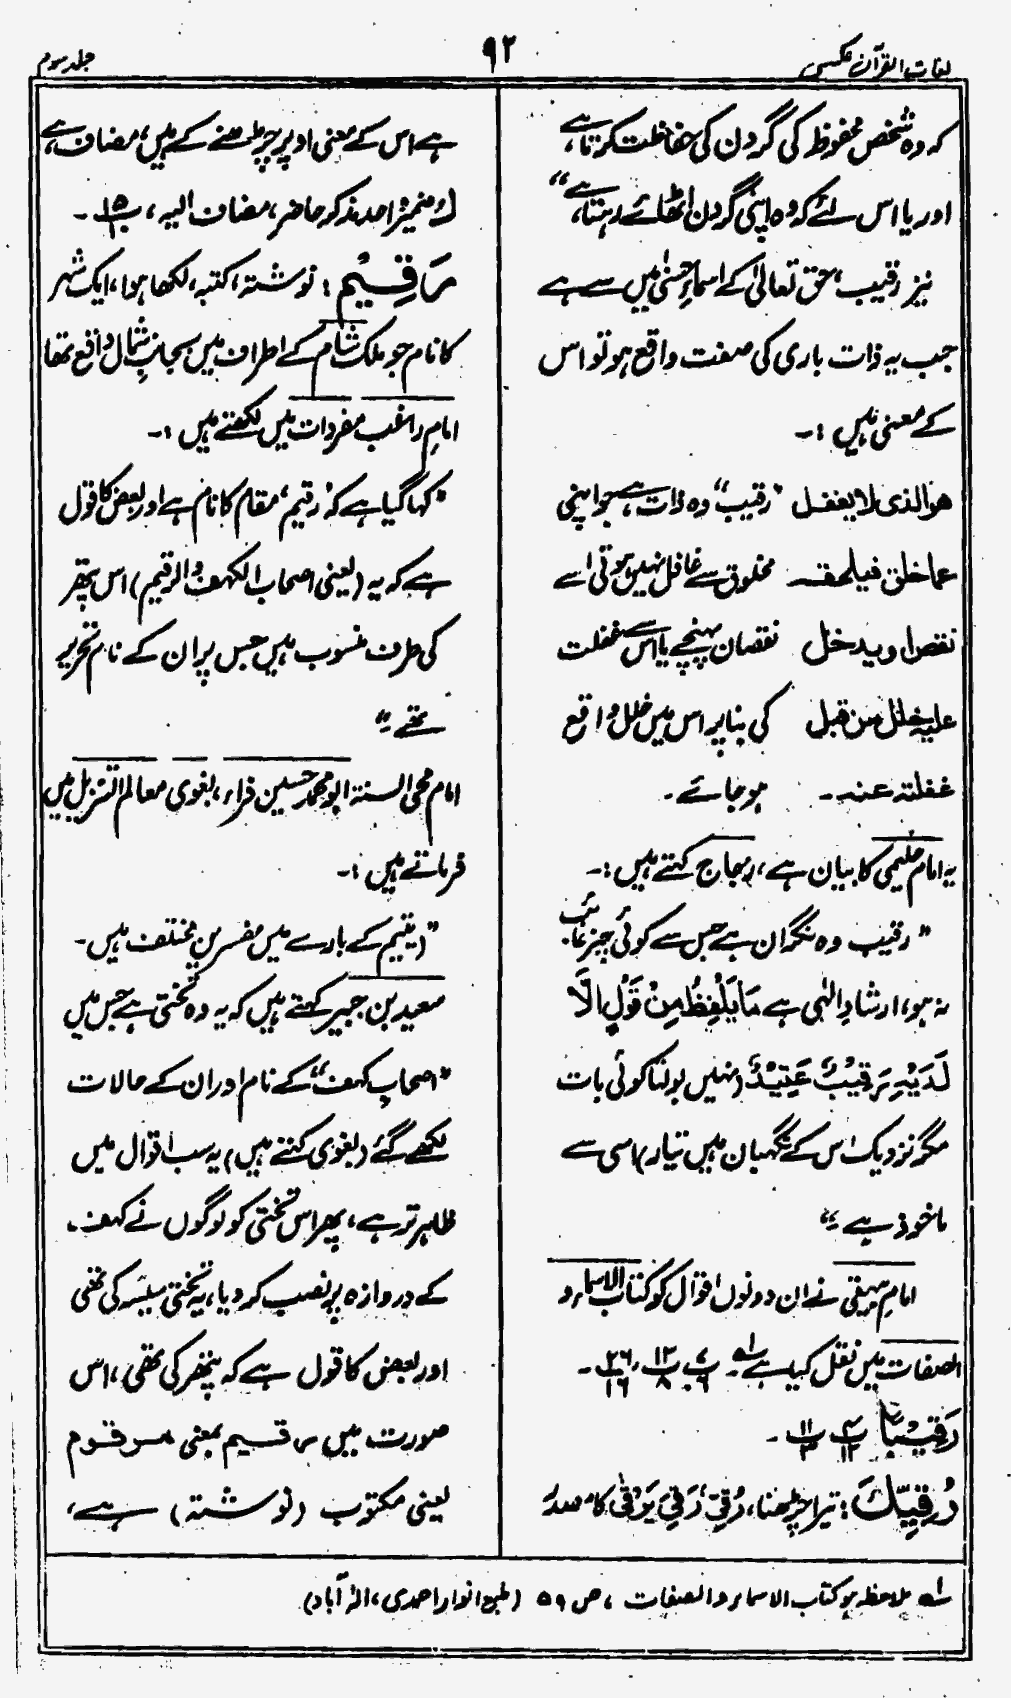 لغات القرآن عکسی
۹۲
جلد سوم
کہ وہ شخص محفوظ کی گردن کی حفاظت کرتا ہے،
اور یا اس لئے کہ وہ اپنی گردن اٹھائے رہتا ہے،“
نیز رقیب، حق تعالیٰ کے اسماءِ حسنٰی میں سے ہے
جب یہ ذات باری کی صفت واقع ہو تو اس
کے معنی ہیں :۔
ھو الذی لا یغفل ”رقیب“ وہ ذات ہے جو اپنی
عما خلق فیلحقہ مخلوق سے غافل نہیں ہوتی اسے
نقص او یدخل نقصان پہنچے یا اس سے غفلت
علیہ خلل من قبل کی بنا پر اس میں خلل واقع
غفلتہ عنہ۔ ہو جائے۔
یہ امام حلیمی کا بیان ہے، زجاج کہتے ہیں :۔
” رقیب وہ نگران ہے جس سے کوئی چیز غائب
نہ ہو، ارشادِ الٰہی ہے مَا یَلْفِظُ مِنْ قَوْلٍ اِلَّا
لَدَیْہِ رَقِیْبٌ عَتِیْدٌ (نہیں بولتا کوئی بات
مگر نزدیک اس کے نگہبان ہیں تیار) اسی سے
ماخوذ ہے۔“
امام بیہقی نے ان دونوں اقوال کو کتاب الاسماء و
الصفات میں نقل کیا ہے۔ لہ پ ۷/۶ پ ۱۲/۸، پ ۲۶/۱۶۔
رَقِیْبًا پ ۴/۱۲ پ ۱۱/۳۔
رُقِیِّکَ : تیرا چڑھنا، رُقِیّ، رَقِیَ یَرْقٰی کا مصدر
ہے اس کے معنی اوپر چڑھنے کے ہیں، مضاف ہے،
كَ ضمیر واحد مذکر حاضر، مضاف الیہ، پ ۱۵۔
رَقِیْم : نوشتہ، کتبہ، لکھا ہوا، ایک شہر
کا نام جو ملک شام کے اطراف میں بجانبِ شمال واقع تھا
امام راغب مفردات میں لکھتے ہیں :۔
”کہا گیا ہے کہ ’رقیم‘ مقام کا نام ہے اور بعض کا قول
ہے کہ یہ (یعنی اصحاب الکہف والرقیم) اس پتھر
کی طرف منسوب ہیں جس پر ان کے نام تحریر
تھے۔“
امام محی السنۃ ابو محمد حسین فراء، بغوی معالم التنزیل میں
فرماتے ہیں :۔
”رقیم کے بارے میں مفسرین مختلف ہیں۔
سعید بن جبیر کہتے ہیں کہ یہ وہ تختی ہے جس میں
”اصحابِ کہف“ کے نام اور ان کے حالات
لکھے گئے (بغوی کہتے ہیں) یہ سب اقوال میں
ظاہر تر ہے، پھر اس تختی کو لوگوں نے کہف
کے دروازہ پر نصب کر دیا، یہ تختی سیسہ کی تھی
اور بعض کا قول ہے کہ پتھر کی تھی، اس
صورت میں رقیم بمعنی مرقوم
یعنی مکتوب (نوشتہ) ہے،
لہ ملاحظہ ہو کتاب الاسماء والصفات، ص ۵۹ (طبع انوار احمدی، الہ آباد)